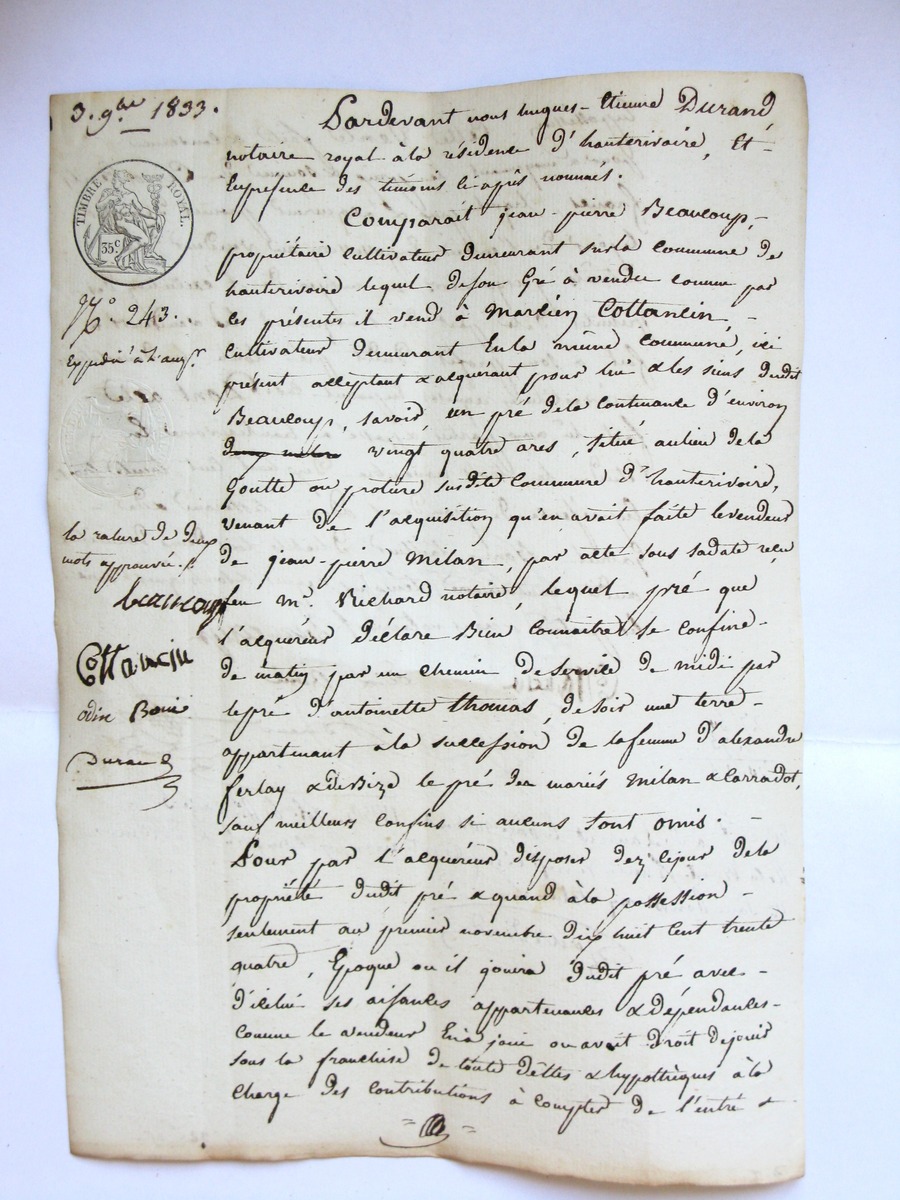 3. 9bre 1833.
TIMBRE ROYAL.
35c
No. 243.
la rature de deux
mots approuvée.
Beaucoup
Cottancin
Durand
Pardevant nous hugues-Etienne Durand,
notaire royal à la résidence d'hauterivoire, Et
En présence des témoins ci après nommés.
Comparait jean-pierre Beaucoup,
propriétaire cultivateur demeurant sur la commune de
hauterivoire lequel de son gré à vendu comme par
ces présentes il vend à Marcien Cottancin
cultivateur demeurant En la même commune, ici
présent acceptant & acquérant pour lui & les siens dudit
Beaucoup, savoir, un pré de la contenance d'environ
vingt quatre ares, situé, au lieu de la
Goutte ou proture susdite Commune d'hauterivoire,
venant de l'acquisition qu'en avait faite le vendeur
de jean-pierre Milan, par acte sous sa date reçu
feu me. Richard notaire, lequel pré que
l'acquéreur déclare Bien connaitre, se confine
de matin par un chemin de service de midi par
le pré d'antoinette thomas, de soir une terre
appartenant à la succession de la femme d'alexandre
ferlay & de Bize le pré des mariés Milan & Carradot,
sauf meilleurs confins si aucuns sont omis.
Pour par l'acquéreur disposer dez ce jour de la
propriété dudit pré & quand à la possession
seulement au premier novembre dix huit cent trente
quatre, Epoque ou il jouira dudit pré avec
d'icelui ses aisances appartenances & dépendances
comme le vendeur En a joui ou avait droit de jouir
sous la franchise de toute dettes & hypothèques à la
charge des contributions à compter de l'entré &